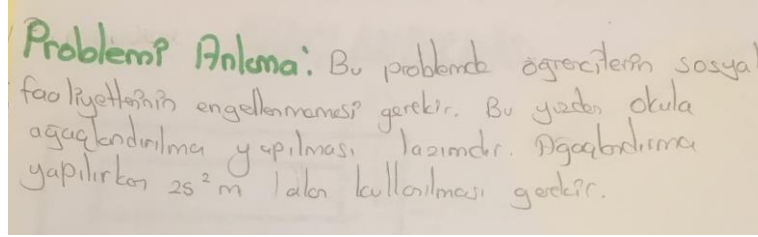 Problemi Anlama: Bu problemde öğrencilerin sosyal
faaliyetlerinin engellenmemesi gerekir. Bu yüzden okula
ağaçlandırılma yapılması lazımdır. Ağaçlandırma
yapılırken 25² m lalan kullanılması gerekir.